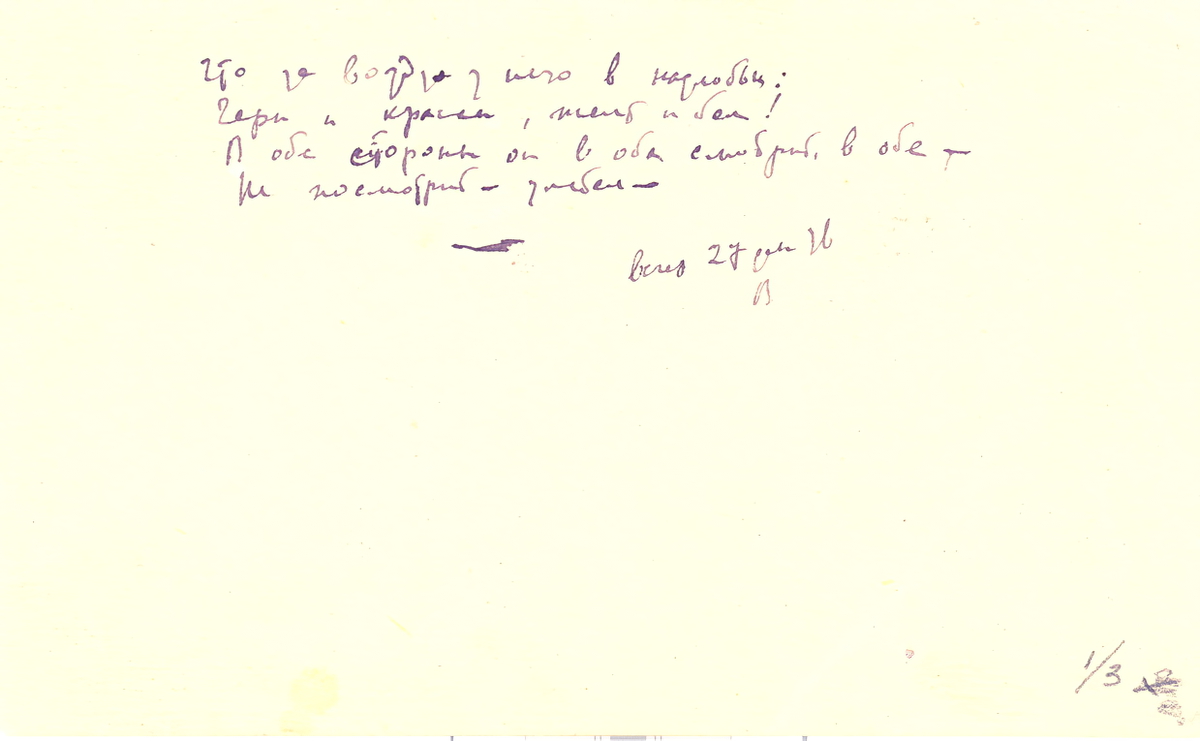 Что за воззда у него в надлобьи:
Черн и красен, желт и бел!
В обе стороны он в оба смотрит, в обе —
Не посмотрит —
вечер 27 дек
В
1/3